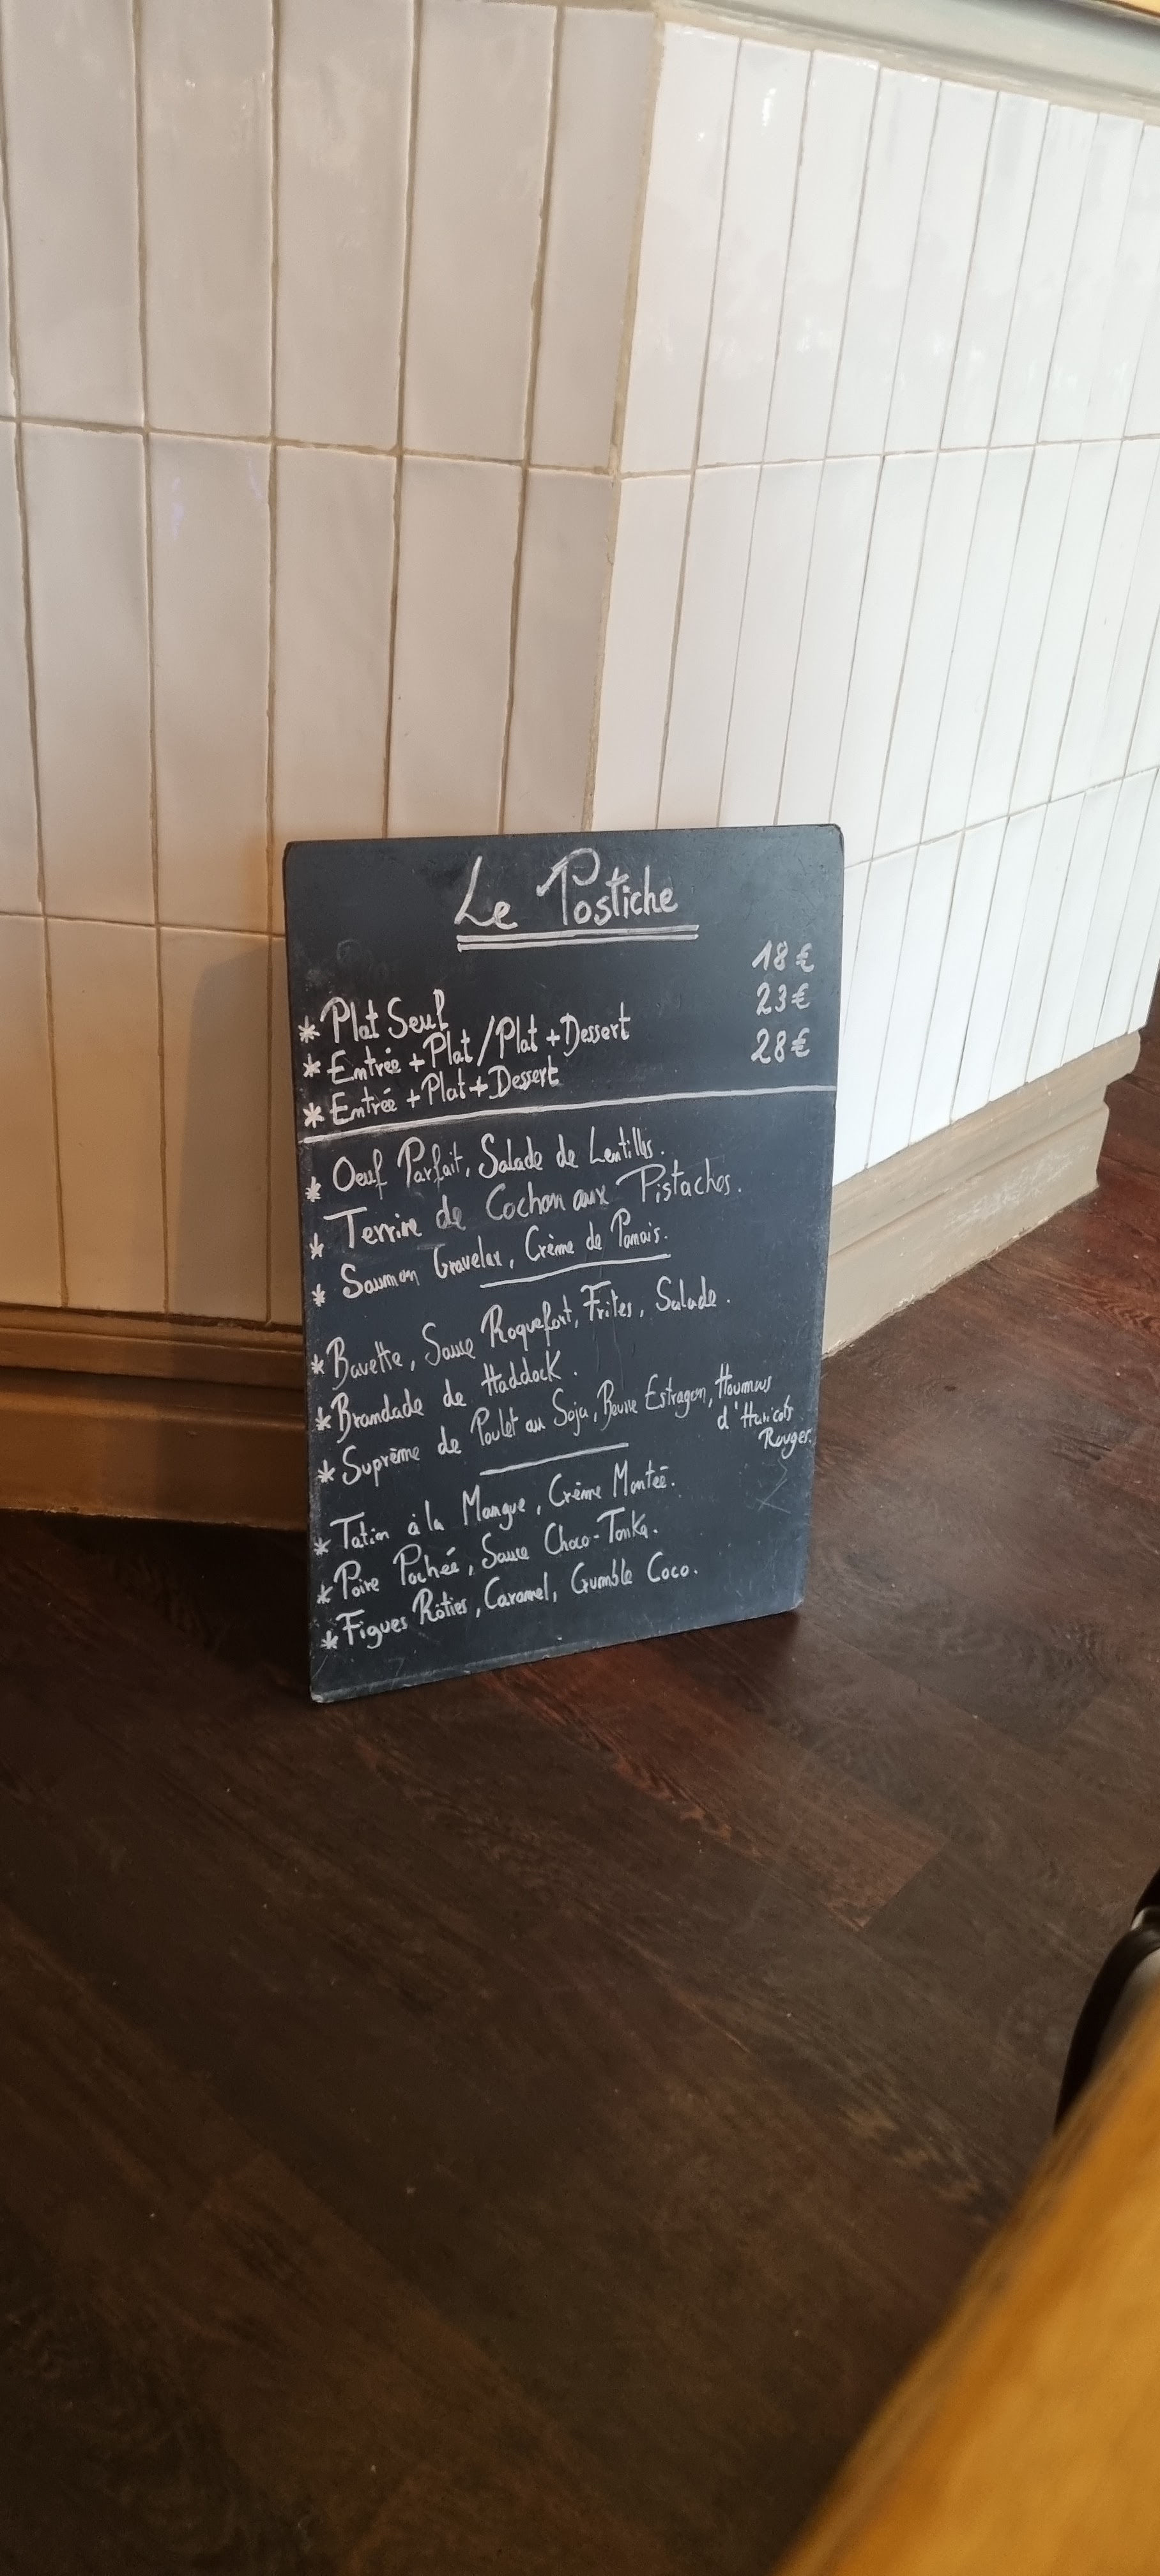 Le Postiche
* Plat Seul 18€
* Entrée + Plat / Plat + Dessert 23€
* Entrée + Plat + Dessert 28€
* Oeuf Parfait, Salade de Lentilles.
* Terrine de Cochon aux Pistaches.
* Saumon Gravelax, Crème de Panais.
* Bavette, Sauce Roquefort, Frites, Salade.
* Brandade de Haddock.
* Suprême de Poulet au Soja, Beurre Estragon, Houmous
d'Haricots
Rouges.
* Tatin à la Mangue, Crème Montée.
* Poire Pochée, Sauce Choco-Tonka.
* Figues Rôties, Caramel, Crumble Coco.